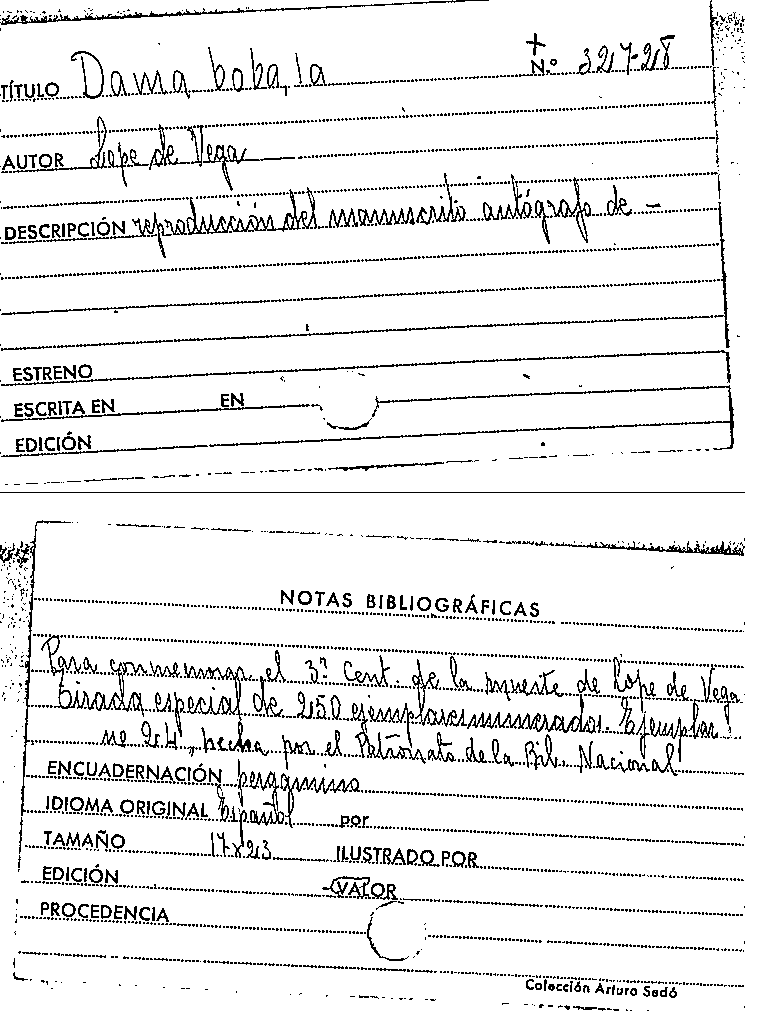 TÍTULO Dama boba, la
+
N.º 32717-28
AUTOR Lope de Vega
DESCRIPCIÓN reproducción del manuscrito autógrafo de –
ESTRENO
ESCRITA EN EN
EDICIÓN
NOTAS BIBLIOGRÁFICAS
Para conmemorar el 3º Cent. de la muerte de Lope de Vega
tirada especial de 250 ejemplares numerados. Ejemplar
no 24, hecha por el Patronato de la Bib. Nacional
ENCUADERNACIÓN pergamino
IDIOMA ORIGINAL Español por
TAMAÑO 17x23 ILUSTRADO POR
EDICIÓN VALOR
PROCEDENCIA
Colección Arturo Sedó